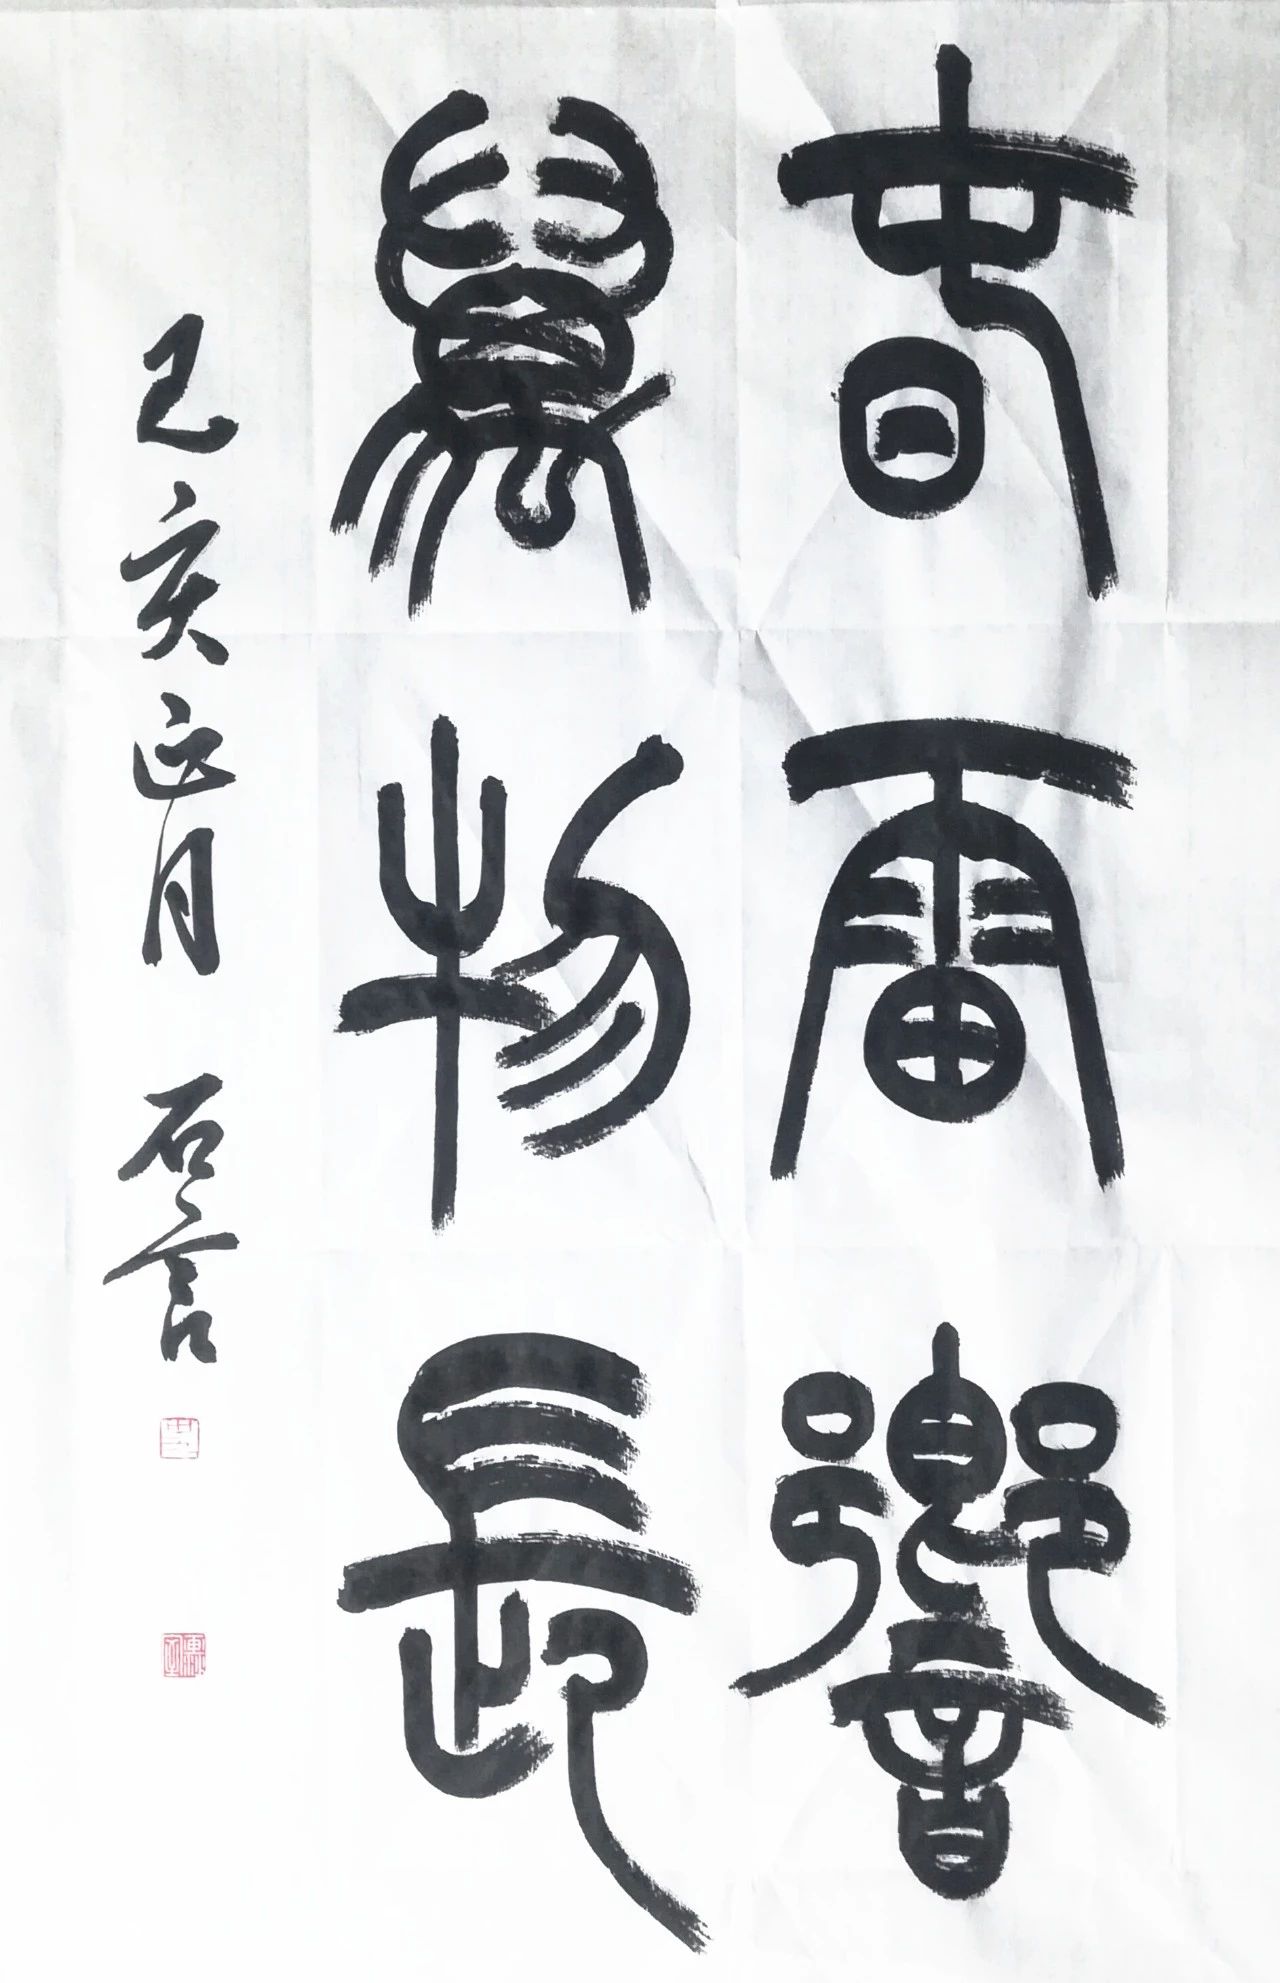 春雷響
萬物長
己亥正月 石言